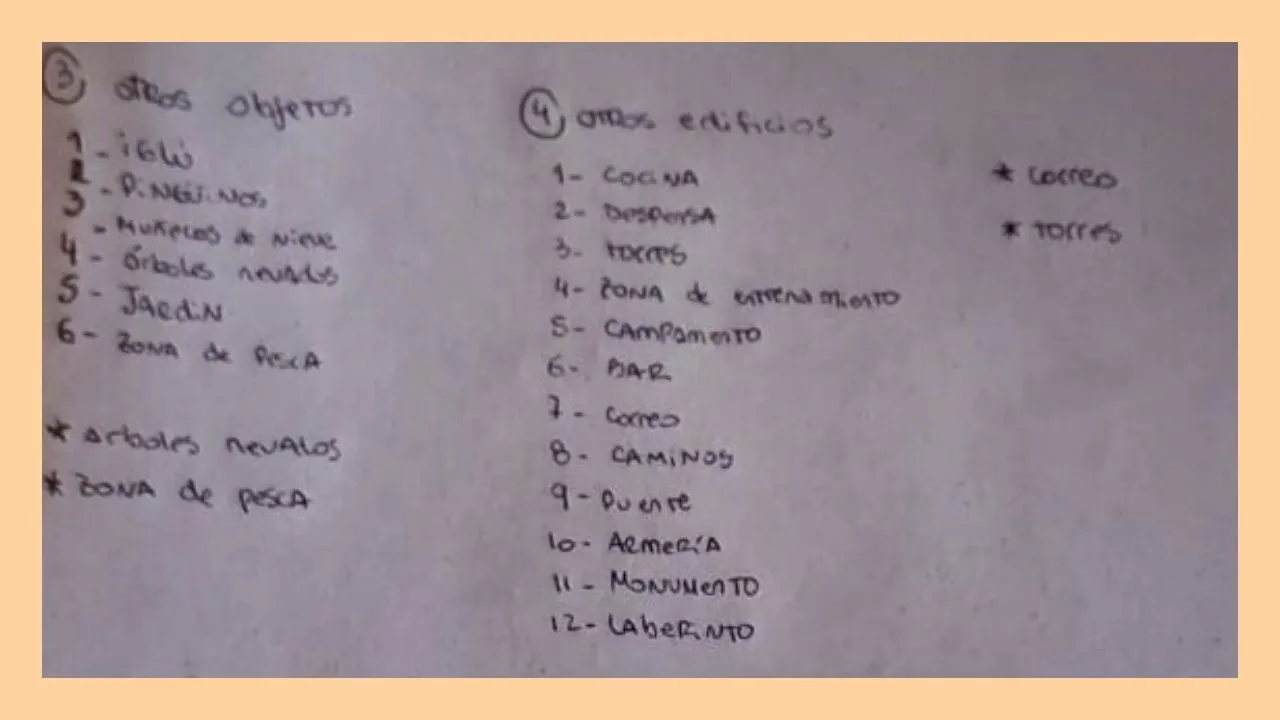 3 otros objetos
1 - iglú
2 - Pingüinos
3 - Muñecos de nieve
4 - árboles nevados
5 - Jardin
6 - Zona de pesca
* arboles nevados
* Zona de pesca
4 otros edificios
1 - Cocina
2 - Despensa
3 - torres
4 - Zona de entrenamiento
5 - Campamento
6 - Bar
7 - Correo
8 - Caminos
9 - Puente
10 - Armería
11 - Monumento
12 - Laberinto
* Correo
* torres